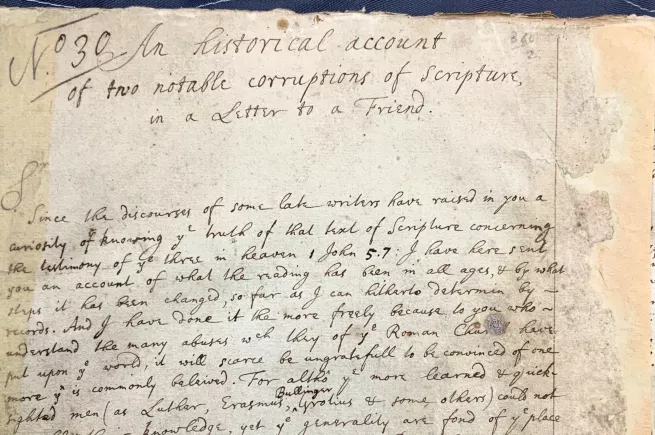 No 30 An historical account
360
2
of two notable corruptions of Scripture,
in a Letter to a Friend.
Sr
Since the discourses of some late writers have raised in you a
curiosity of knowing ye truth of that text of Scripture concerning
the testimony of ye three in heaven 1 John 5.7: I have here sent
you an account of what the reading has been in all ages, & by what
steps it has been changed, so far as I can hitherto determin by
records. And I have done it the more freely because to you who
understand the many abuses wch they of ye Roman Church have
put upon ye world, it will scarce be ungratefull to be convinced of one
more yn is commonly beleived. For altho ye more learned & quick-
sighted men (as Luther, Erasmus, Bullinger, Grotius & some others) could not
knowledge, yet ye generality are fond of ye place